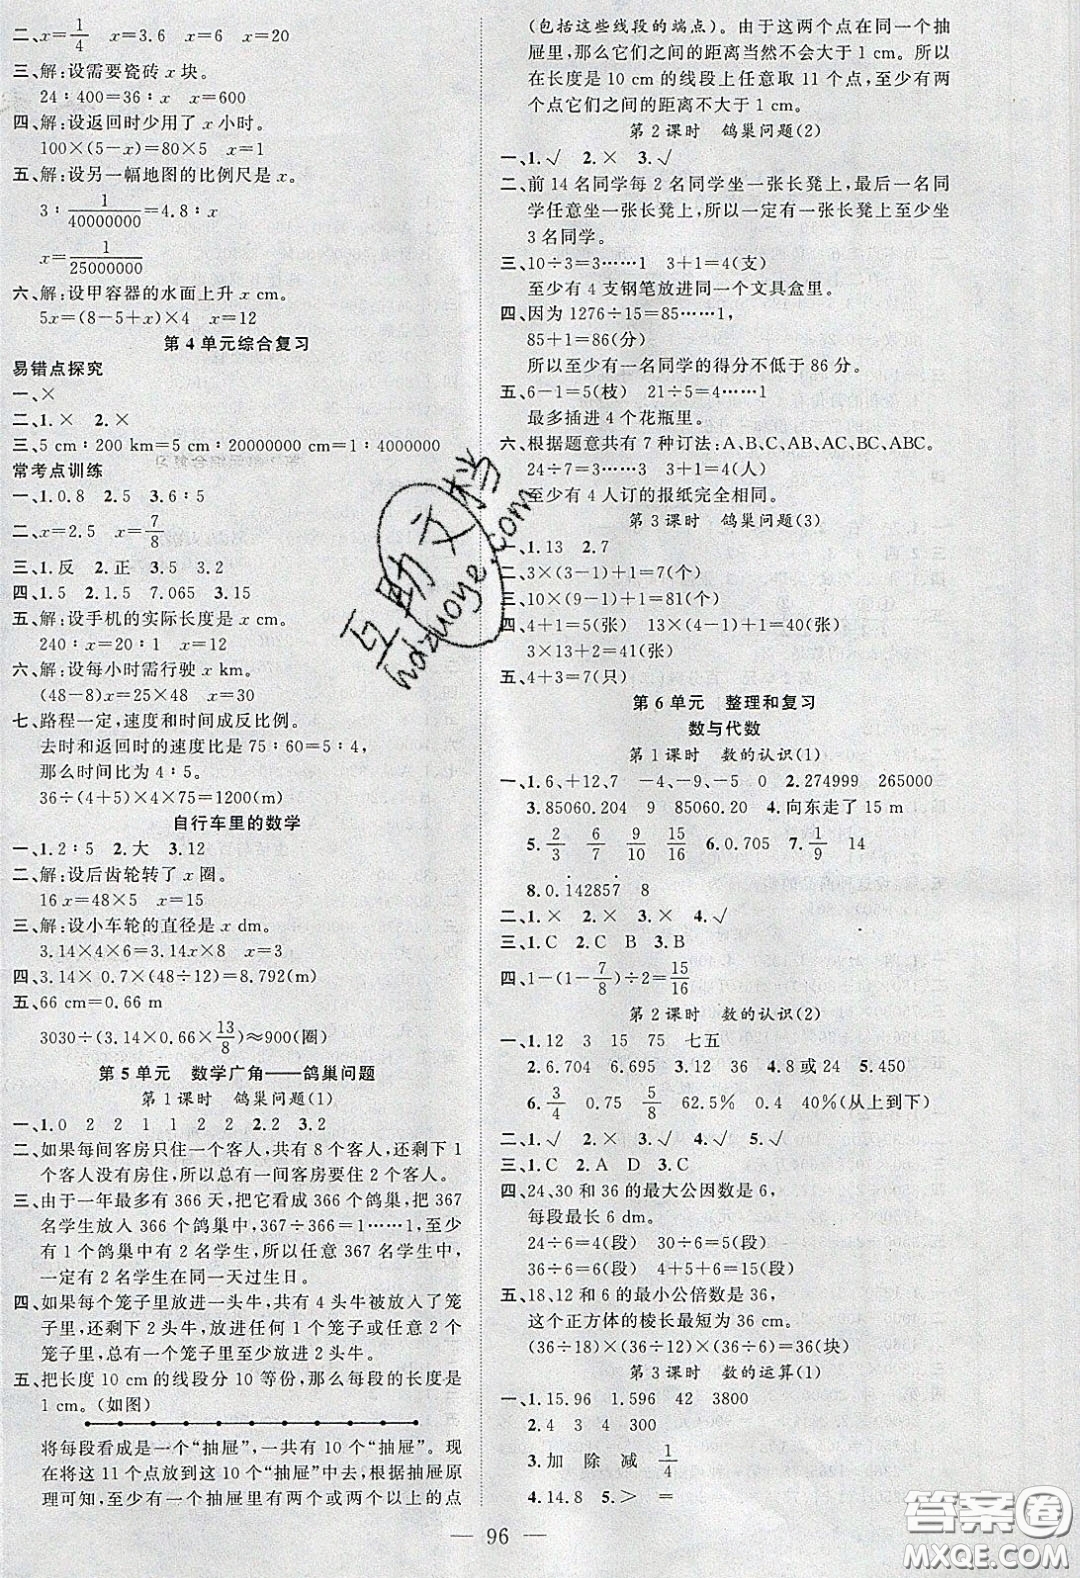 二、x=1/4 x=3.6 x=6 x=20
三、解:设需要瓷砖 x 块。
24∶400=36∶x x=600
四、解:设返回时少用了 x 小时。
100×(5-x)=80×5 x=1
五、解:设另一幅地图的比例尺是 x。
3∶1/40000000=4.8∶x
x=1/25000000
六、解:设甲容器的水面上升 x cm。
5x=(8-5+x)×4 x=12
第 4 单元综合复习
易错点探究
一、×
二、1.× 2.×
三、5 cm∶200 km=5 cm∶20000000 cm=1∶4000000
常考点训练
一、1.0.8 2.5 3.6∶5
二、x=2.5 x=7/8
三、1.反 2.正 3.5 3.2
四、1.5 1.5 7.065 3.15
五、解:设手机的实际长度是 x cm。
240∶x=20∶1 x=12
六、解:设每小时需行驶 x km。
(48-8)x=25×48 x=30
七、路程一定,速度和时间成反比例。
去时和返回时的速度比是 75∶60=5∶4,
那么时间比为 4∶5。
36÷(4+5)×4×75=1200(m)
自行车里的数学
一、1.2∶5 2.大 3.12
二、解:设后齿轮转了 x 圈。
16x=48×5 x=15
三、解:设小车轮的直径是 x dm。
3.14×4×6=3.14x×8 x=3
四、3.14×0.7×(48÷12)=8.792(m)
五、66 cm=0.66 m
3030÷(3.14×0.66×13/8)≈900(圈)
第 5 单元 数学广角——鸽巢问题
第 1 课时 鸽巢问题(1)
一、1.0 2 2 1 1 2 2 2.2 3.2
二、如果每间客房只住一个客人,共有 8 个客人,还剩下 1
个客人没有房住,所以总有一间客房要住 2 个客人。
三、由于一年最多有 366 天,把它看成 366 个鸽巢,把 367
名学生放入 366 个鸽巢中,367÷366=1……1,至少
有 1 个鸽巢中有 2 名学生,所以任意 367 名学生中,
一定有 2 名学生在同一天过生日。
四、如果每个笼子里放进一头牛,共有 4 头牛被放进了笼
子里,还剩下 2 头牛,放进任何 1 个笼子或任意 2 个
笼子里,总有一个笼子里至少放进 2 头牛。
五、把长度 10 cm 的线段分 10 等份,那么每段的长度是
1 cm。(如图)
将每段看成是一个“抽屉”,一共有 10 个“抽屉”。现
在将这 11 个点放到这 10 个“抽屉”中去,根据抽屉原
理可知,至少有一个抽屉里有两个或两个以上的点
(包括这些线段的端点)。由于这两个点在同一个抽
屉里,那么它们之间的距离当然不会大于 1 cm。所以
在长度是 10 cm 的线段上任意取 11 个点,至少有两
个点它们之间的距离不大于 1 cm。
第 2 课时 鸽巢问题(2)
一、1.√ 2.× 3.√
二、前 14 名同学每 2 名同学坐一张长凳上,最后一名同
学任意坐一张长凳上,所以一定有一张长凳上至少坐
3 名同学。
三、10÷3=3……1 3+1=4(支)
至少有 4 支钢笔放进同一个文具盒里。
四、因为 1276÷15=85……1,
85+1=86(分)
所以至少有一名同学的得分不低于 86 分。
五、6-1=5(枝) 21÷5=4……1
最多插进 4 个花瓶里。
六、根据题意共有 7 种订法:A、B、C、AB、AC、BC、ABC。
24÷7=3……3 3+1=4(人)
至少有 4 人订的报纸完全相同。
第 3 课时 鸽巢问题(3)
一、1.13 2.7
二、3×(3-1)+1=7(个)
三、10×(9-1)+1=81(个)
四、4+1=5(张) 13×(4-1)+1=40(张)
3×13+2=41(张)
五、4+3=7(只)
第 6 单元 整理和复习
数与代数
第 1 课时 数的认识(1)
一、1.6、+12、7 -4、-9、-5 0 2.274999 265000
3.85060.204 9 85060.20 4.向东走了 15 m
5.2/3 6/7 9/10 15/16 6.0.705 7.1/9 14
8.0.1̇42857̇ 8
二、1.× 2.× 3.× 4.√
三、1.C 2.C B 3.B
四、1-(1-7/8)÷2=15/16
第 2 课时 数的认识(2)
一、1.12 3 15 75 七五
2.6.704 3.120 6 4.8 或 24 5.450
6.3/4 0.75 5/8 62.5% 0.4 40%(从上到下)
二、1.√ 2.× 3.√ 4.√ 5.√
三、1.C 2.A D 3.C
四、24、30 和 36 的最大公因数是 6,
每段最长 6 dm。
24÷6=4(段) 30÷6=5(段)
36÷6=6(段) 4+5+6=15(段)
五、18、12 和 6 的最小公倍数是 36,
这个正方体的棱长最短为 36 cm。
(36÷18)×(36÷12)×(36÷6)=36(块)
第 3 课时 数的运算(1)
一、1.15.96 1.596 42 3800
2.4 3 4 300
3.加 除 减 1/4
4.14.8 5.> =
96
互助文档
hdzuoye.com
答案圈
MXQE.COM